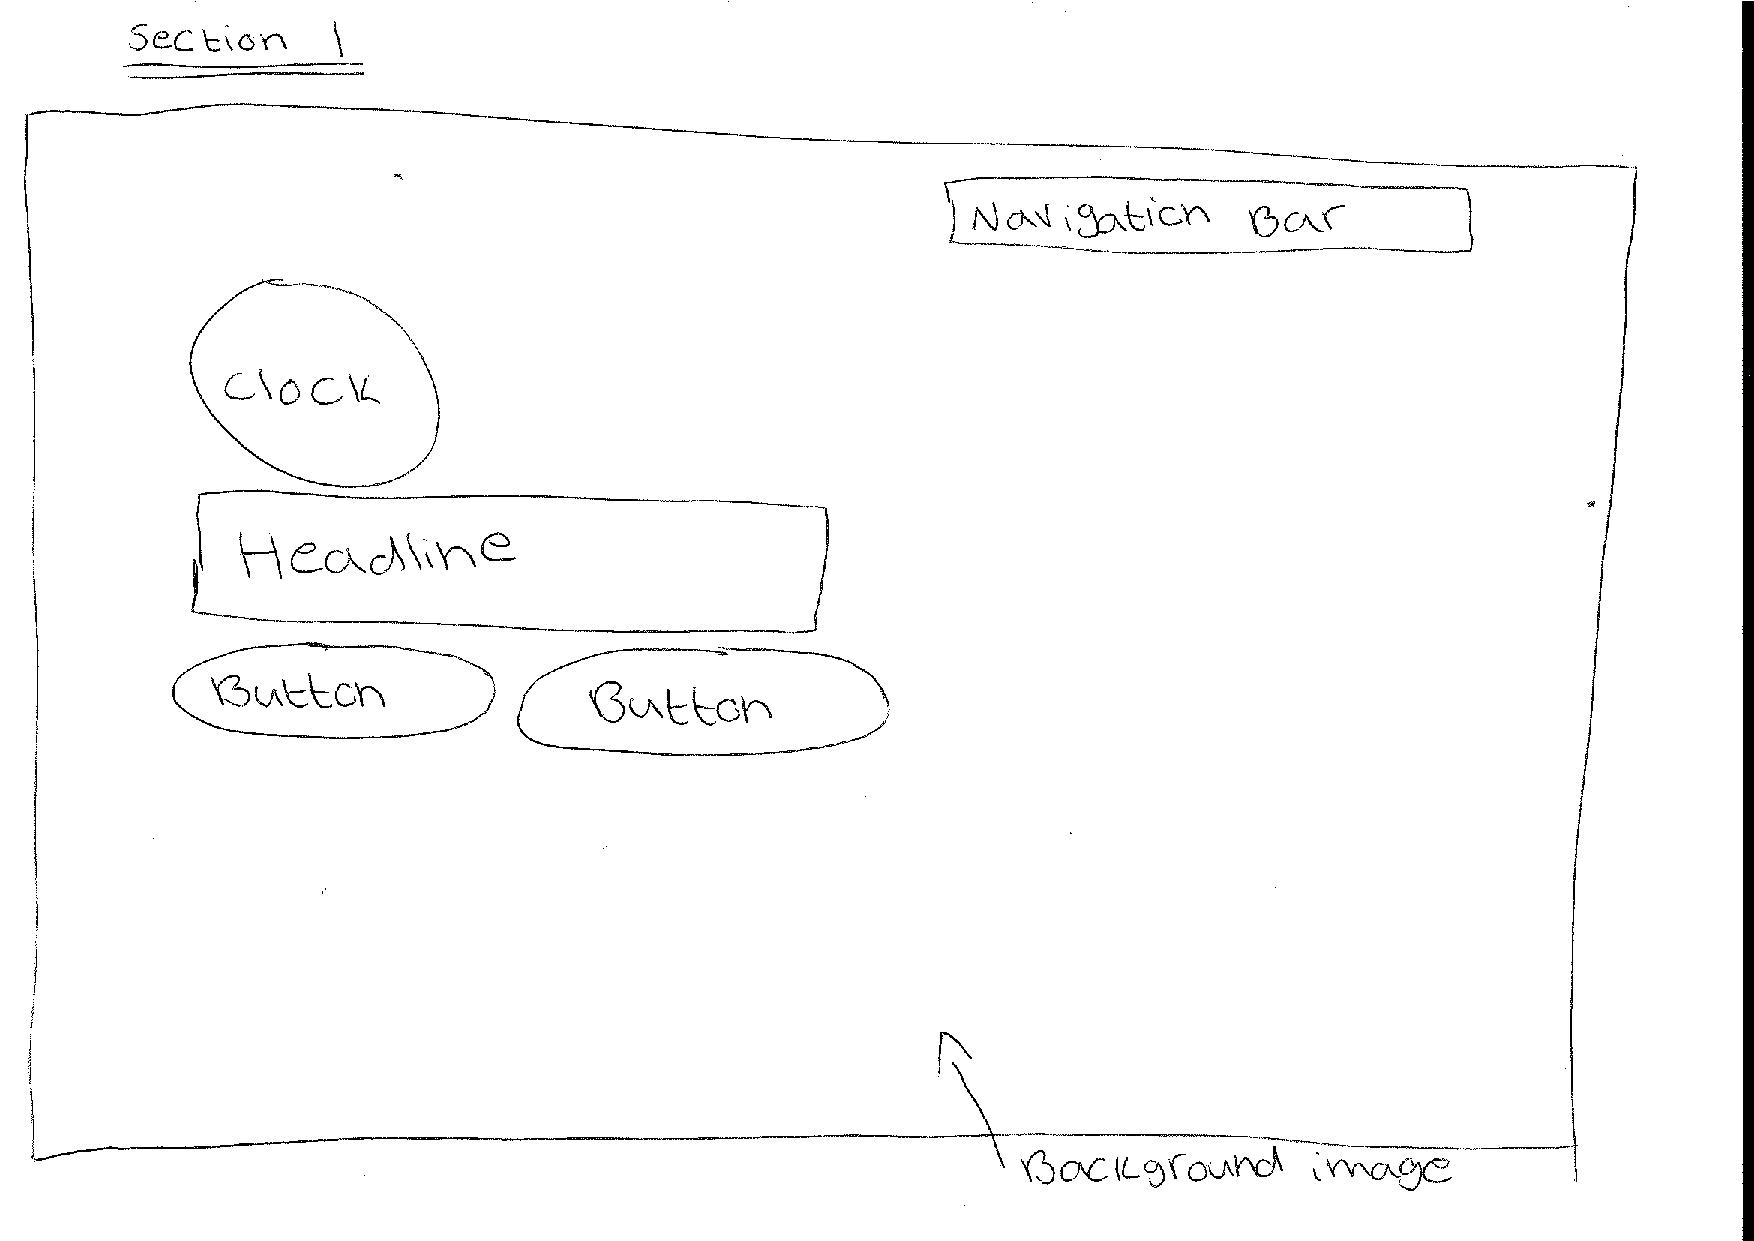 Section 1
Navigation Bar
Clock
Headline
Button
Button
Background image